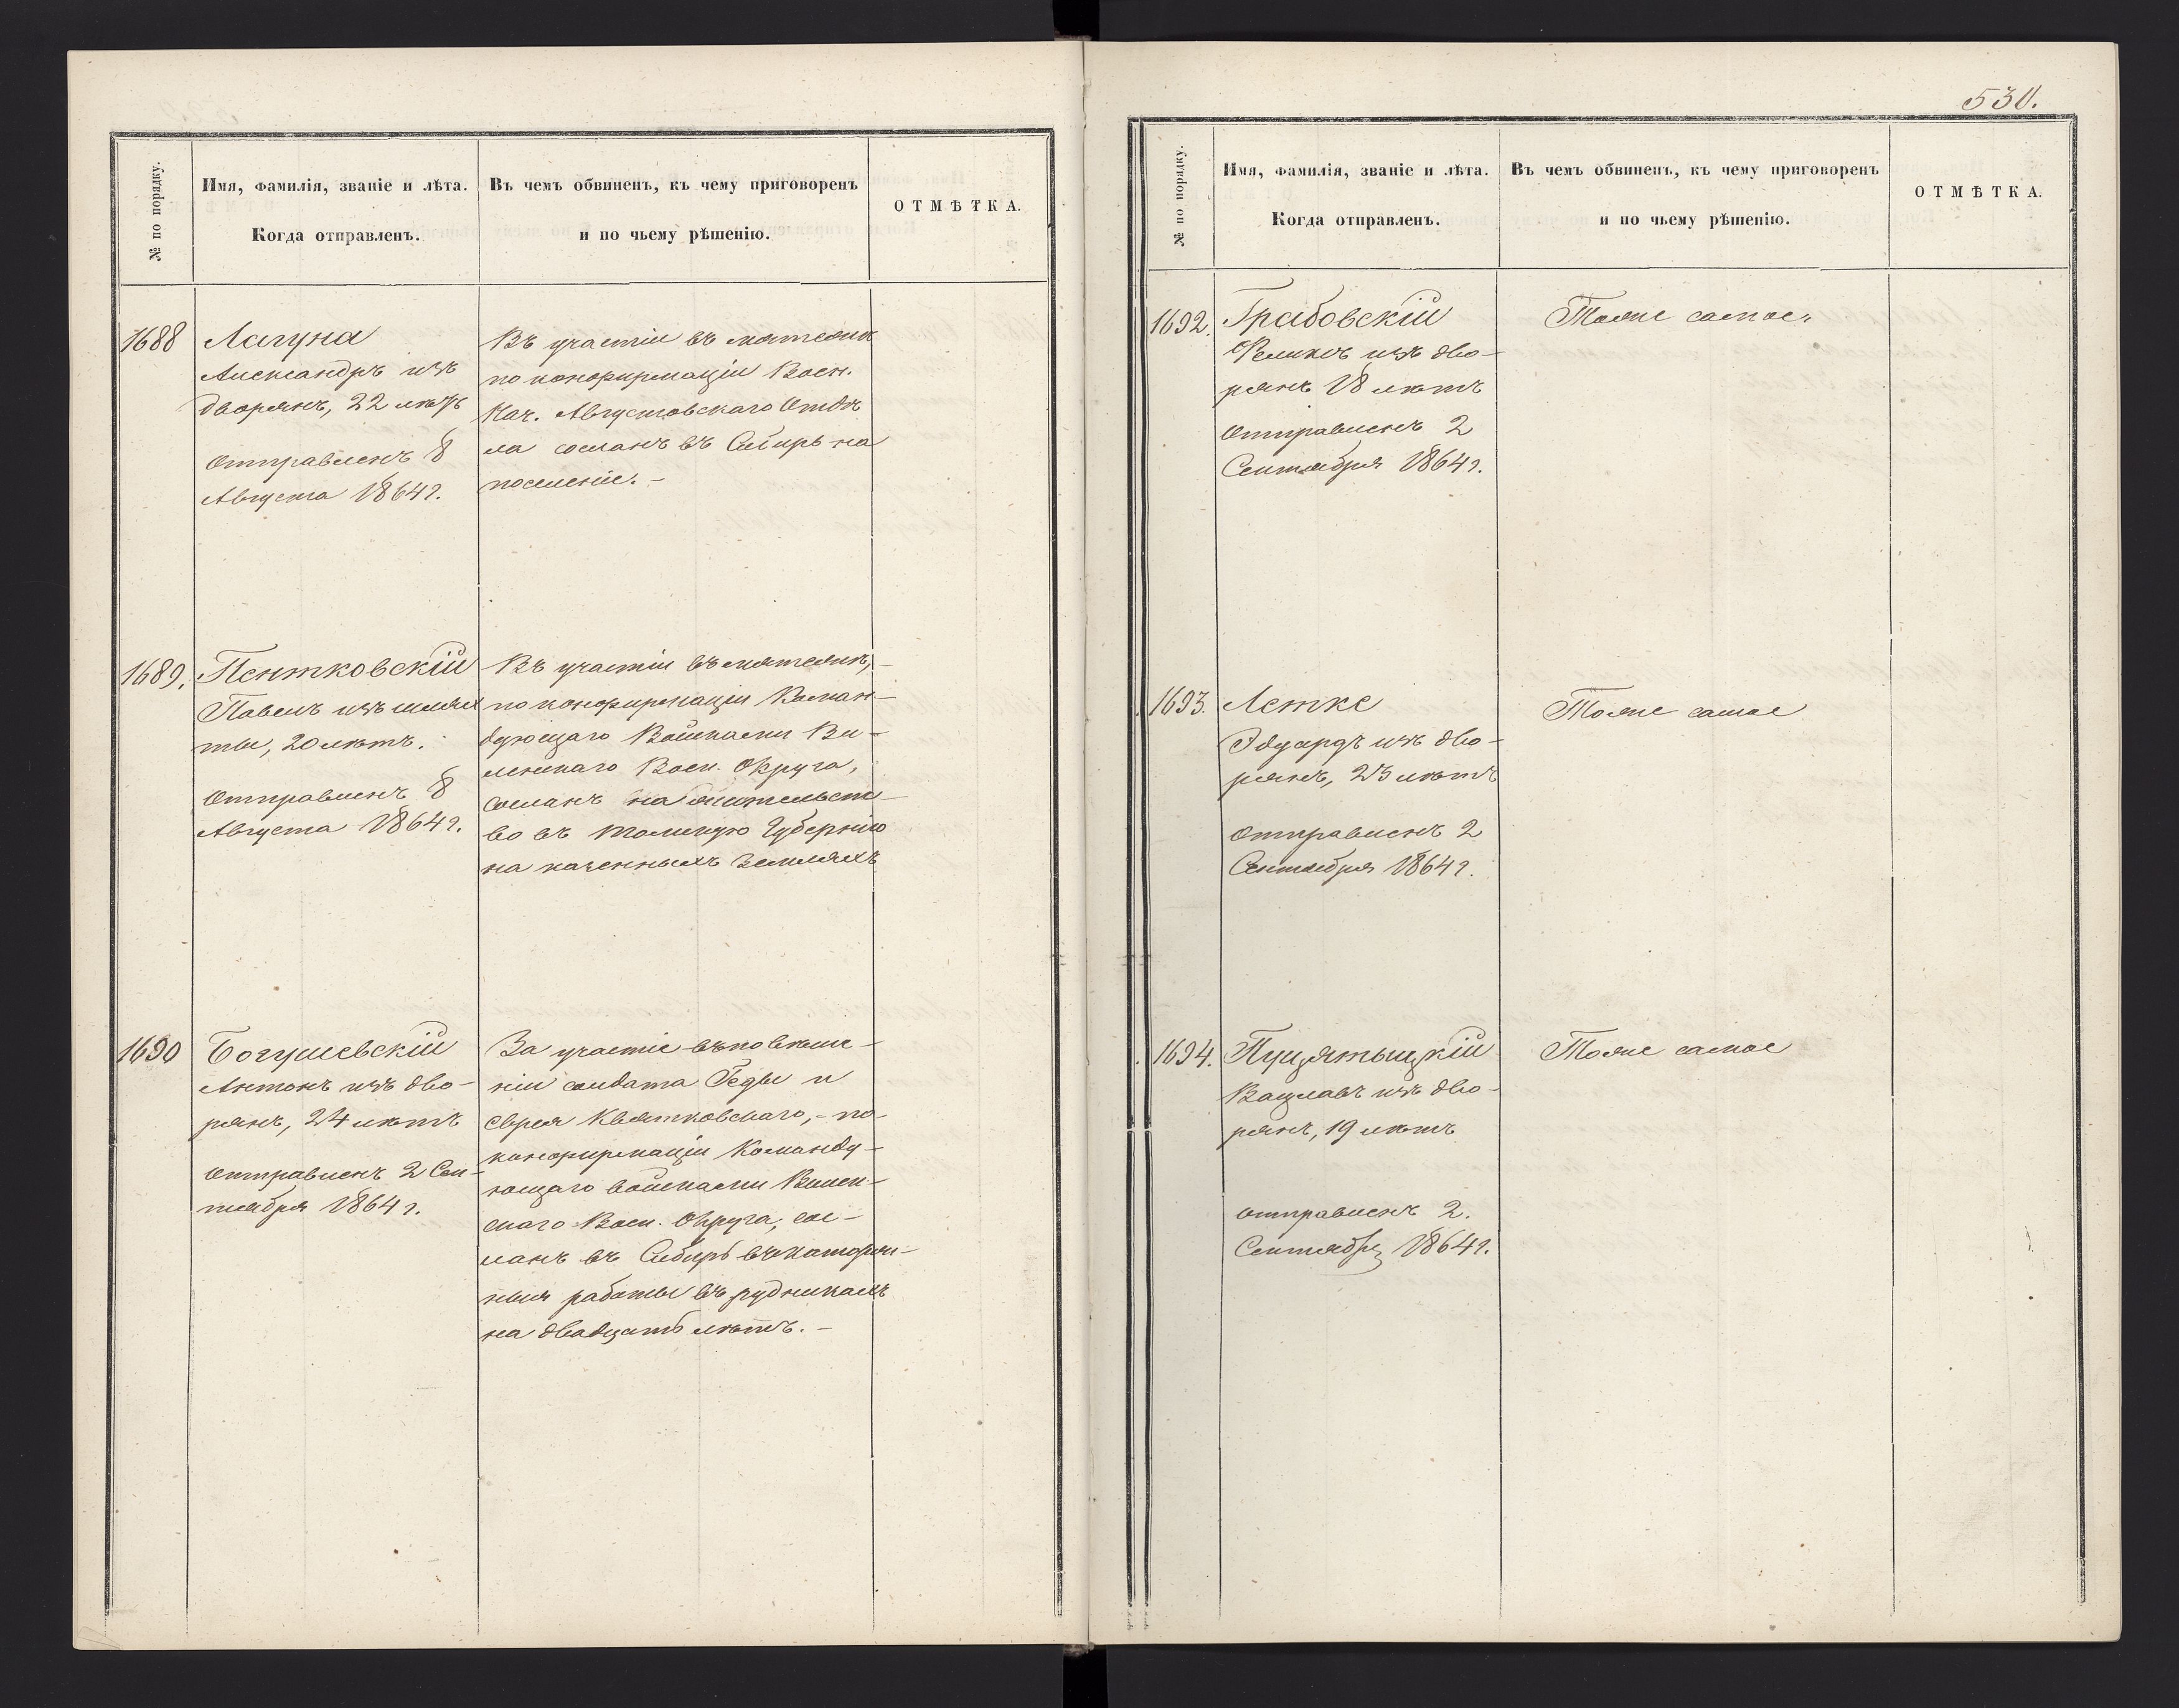 № по порядку.
Имя, фамилія, званіе и лѣта.
Когда отправленъ.
Въ чемъ обвиненъ, къ чему приговоренъ
и по чьему рѣшенію.
ОТМѢТКА.
1688
Лагуна
Александръ изъ
дворянъ, 22 лѣтъ
Отправленъ 8
Августа 1864 г.
Въ участіи въ мятежѣ
по конфирмаціи Воен.
Нач. Августовскаго Отдѣ
ла сосланъ въ Сибирь на
поселеніе. –
1689.
Пентковскій
Павелъ изъ шлях
ты, 20 лѣтъ.
Отправленъ 8
Августа 1864 г.
Въ участіи въ мятежѣ, –
по конфирмаціи Коман–
дующаго Войсками Ви–
ленскаго Воен. Округа,
сосланъ на жительст–
во въ Томскую Губернію
на казенныхъ земляхъ
1690
Богушевскій
Антонъ изъ дво–
рянъ, 24 лѣтъ
Отправленъ 2 Сен–
тября 1864 г.
За участіе въ повѣше–
ніи солдата Геды и
еврея Квятковскаго, – по
конфирмаціи Команду–
ющаго войсками Вилен–
скаго Воен. Округа, сос–
ланъ въ Сибирь въ каторж–
ныя работы въ рудникахъ
на двадцать лѣтъ. –
530.
№ по порядку.
Имя, фамилія, званіе и лѣта.
Когда отправленъ.
Въ чемъ обвиненъ, къ чему приговоренъ
и по чьему рѣшенію.
ОТМѢТКА.
1692.
Грабовскій
Феликсъ изъ дво–
рянъ 18 лѣтъ
Отправленъ 2
Сентября 1864 г.
Тоже самое.
1693.
Летке
Эдуардъ изъ дво–
рянъ, 23 лѣтъ
Отправленъ 2
Сентября 1864 г.
Тоже самое
1694.
Пуцятыцкій
Вацлавъ изъ дво–
рянъ, 19 лѣтъ
отправленъ 2.
Сентября 1864 г.
Тоже самое